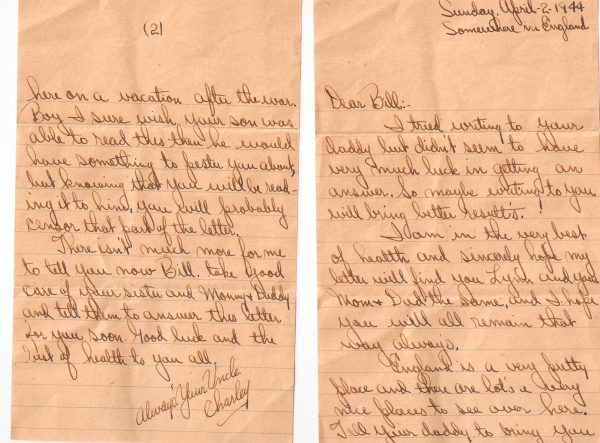 Sunday, April-2-1944
Somewhere in England.
Dear Bill:-
I tried writing to your
daddy but didn't seem to have
very much luck in getting an
answer. So maybe writing to you
will bring better result's.
I am in the very best
of health and sincerly hope my
letter will find you Lynn and your
Mom & Dad the same, and I hope
you will all remain that
way always.
England is a very pretty
place and there are lot's of very
nice places to see over here.
Tell your daddy to bring you
(2)
here on a vacation after the war.
Boy I sure wish your son was
able to read this then he would
have something to pester you about,
but knowing that you will be read-
ing it to him, you will probably
censor that part of the letter.
There isn't much more for me
to tell you now Bill. take good
care of your sister and Mommy & Daddy
and tell them to answer this letter
for you soon. Good luck and the
best of health to you all.
Always Your Uncle
Charley